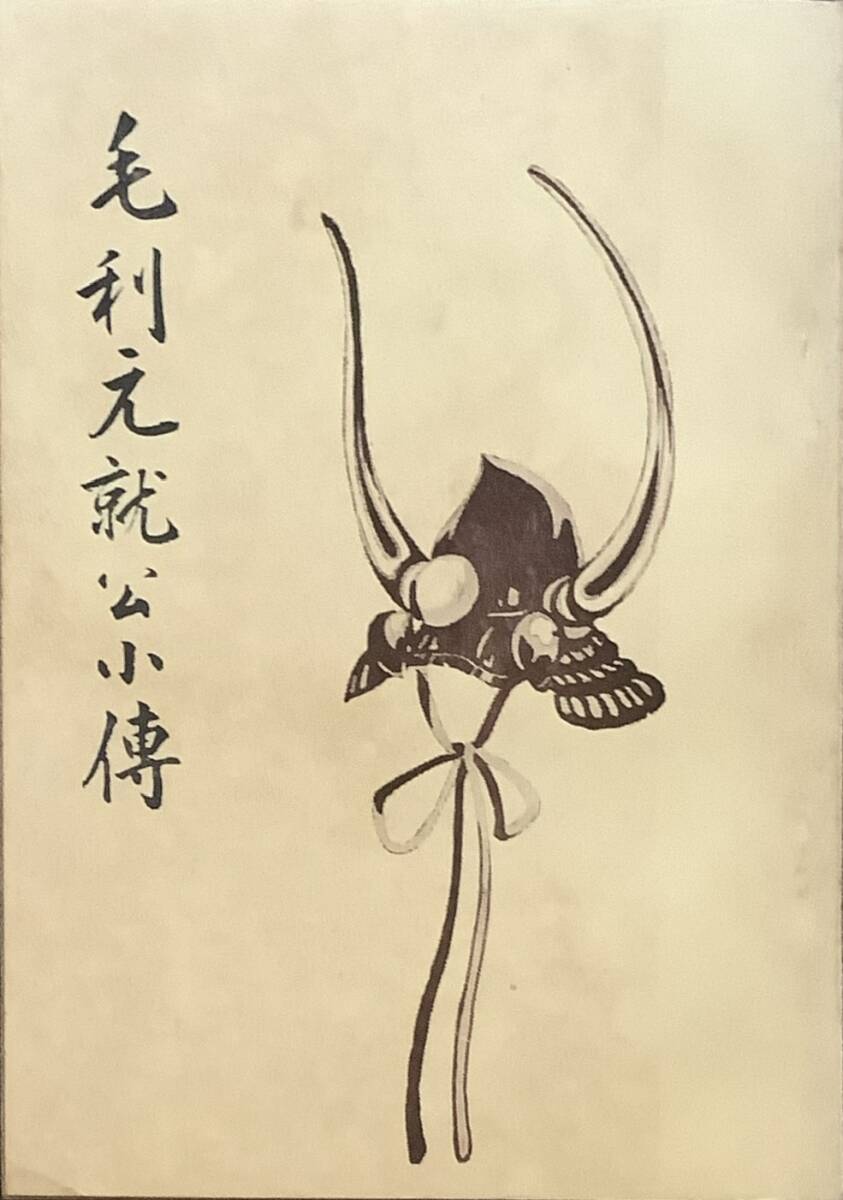 毛利元就公小傳